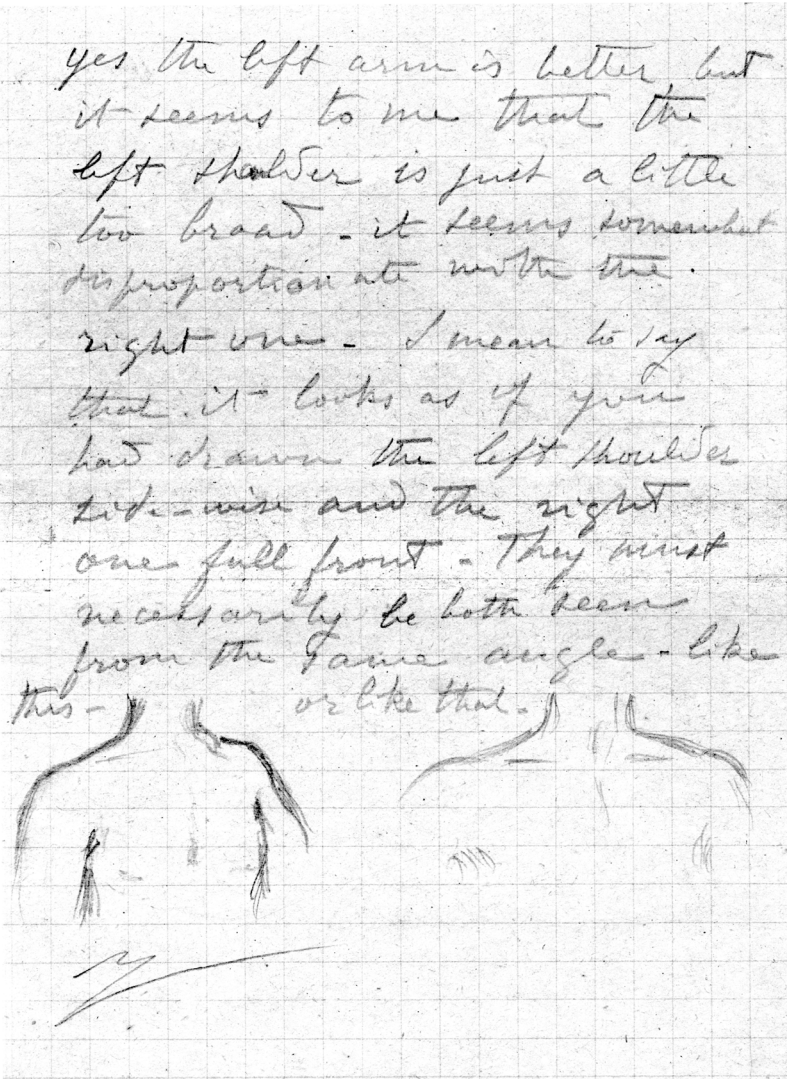 yes the left arm is better, but
it seems to me that the
left sholder is just a little
too broad - it seems somewhat
disproportionate with the
right one - I mean to say
that it looks as if you
had drawn the left shoulder
side-wise and the right
one full front - They must
necessarily be both seen
from the same angle - like
this - or like that -